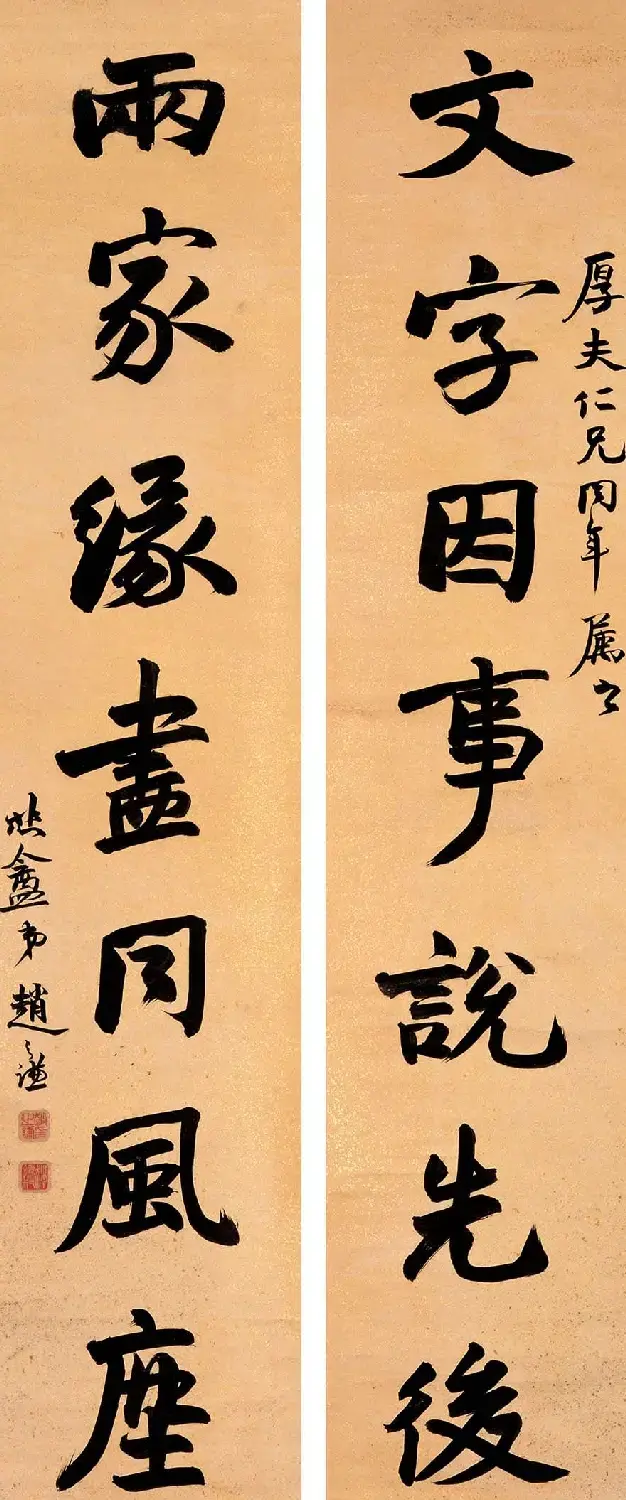 厚夫仁兄同年属書
文字因事說先後
兩家緣盡同風塵
悲盦弟趙之謙